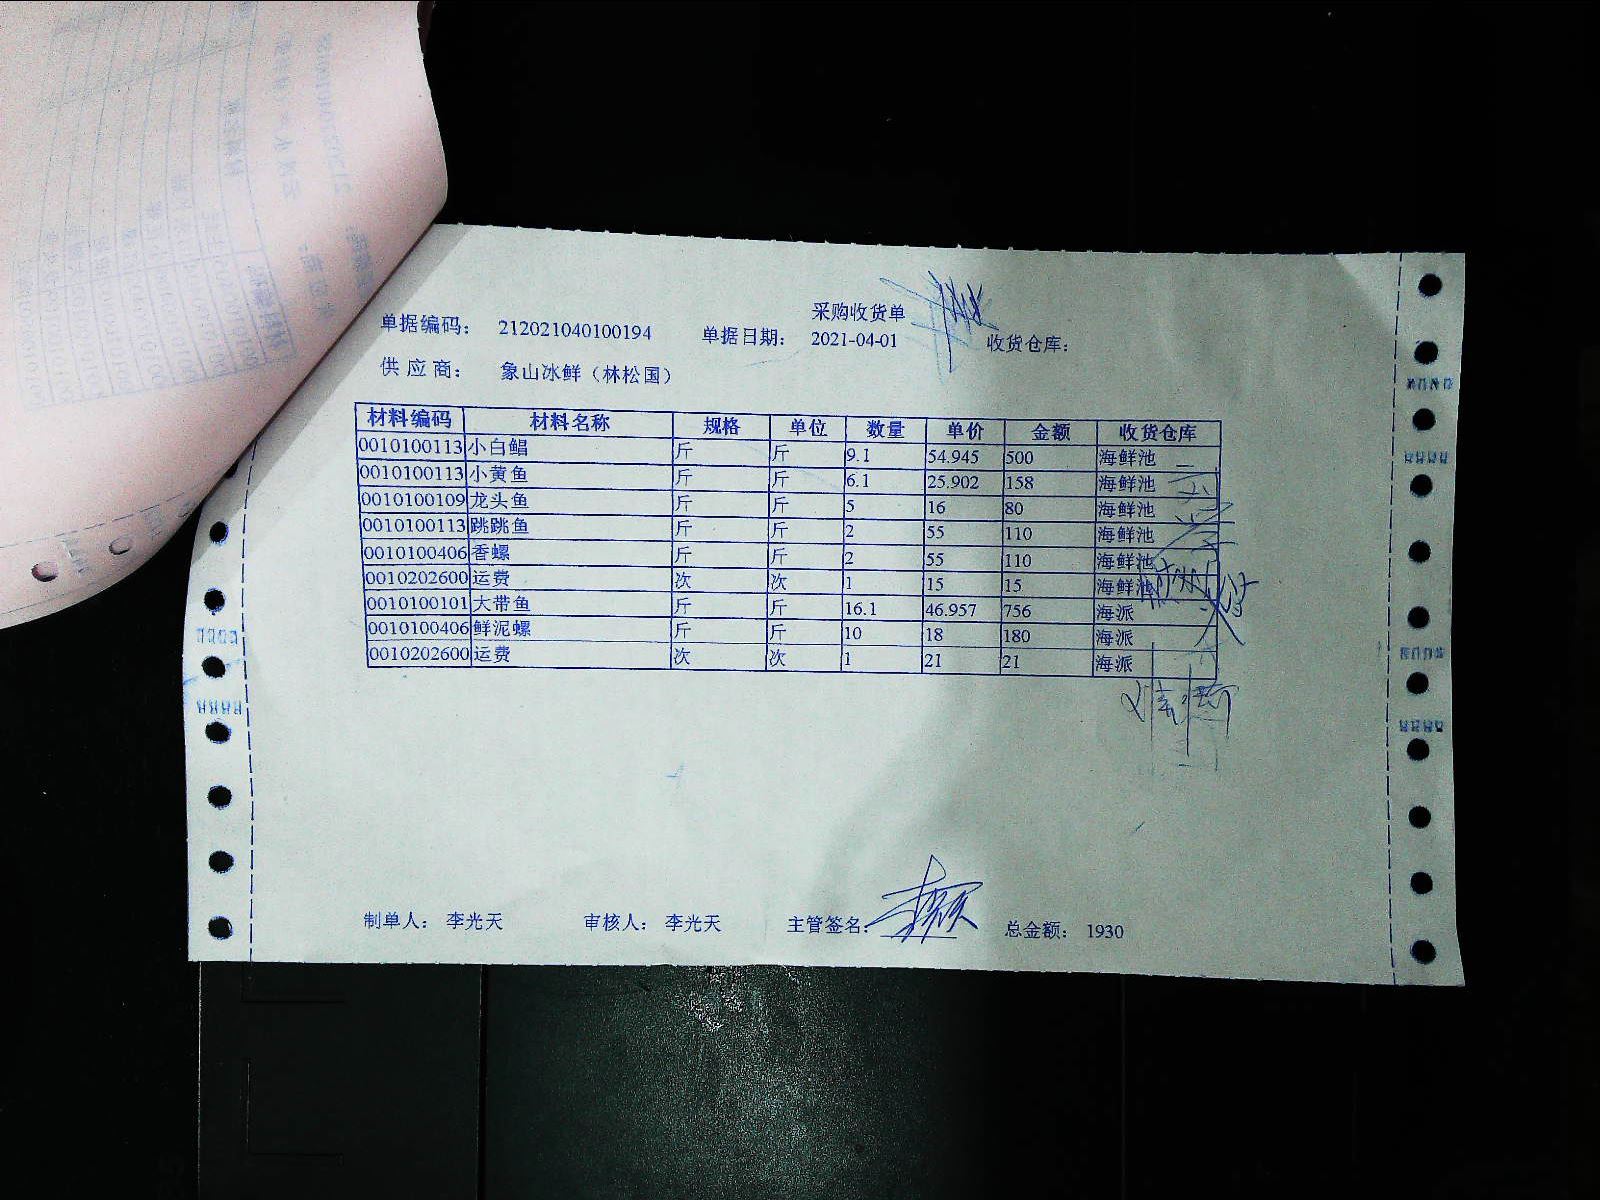 采购收货单
单据编码： 212021040100194 单据日期： 2021-04-01 收货仓库：
供应商： 象山冰鲜（林松国）
材料编码 材料名称 规格 单位 数量 单价 金额 收货仓库
0010100113 小白鲳 斤 斤 9.1 54.945 500 海鲜池
0010100113 小黄鱼 斤 斤 6.1 25.902 158 海鲜池
0010100109 龙头鱼 斤 斤 5 16 80 海鲜池
0010100113 跳跳鱼 斤 斤 2 55 110 海鲜池
0010100406 香螺 斤 斤 2 55 110 海鲜池
0010202600 运费 次 次 1 15 15 海鲜池
0010100101 大带鱼 斤 斤 16.1 46.957 756 海派
0010100406 鲜泥螺 斤 斤 10 18 180 海派
0010202600 运费 次 次 1 21 21 海派
制单人： 李光天 审核人： 李光天 主管签名： 总金额： 1930